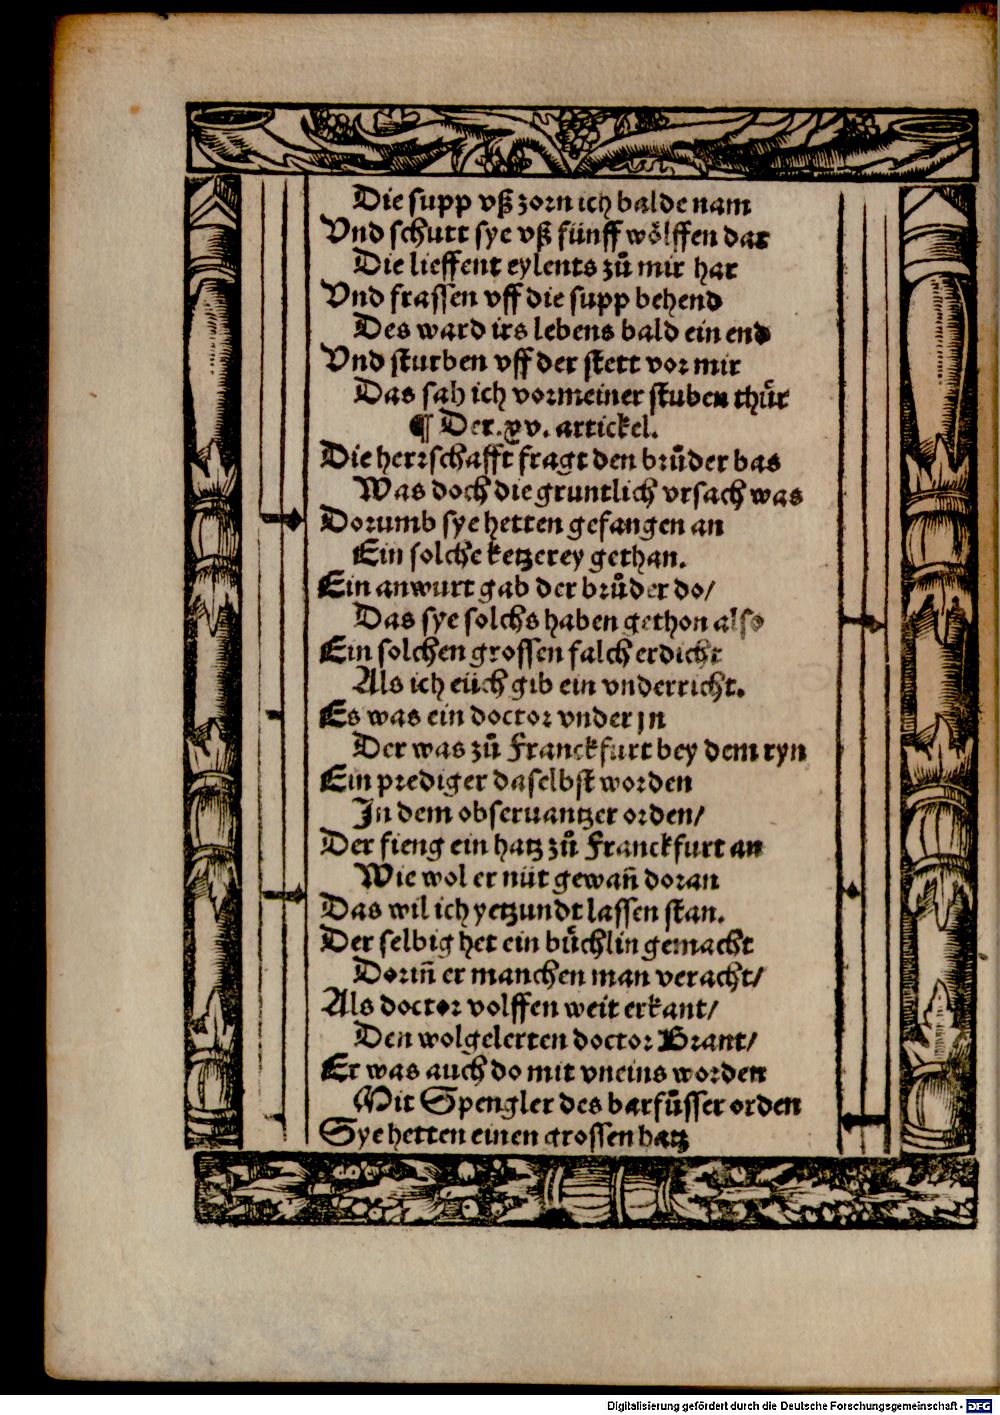 Die supp vß zorn ich balde nam
Vnd schutt sye vß fünff wölffen dar
Die lieffent eylents zů mir har
Vnd frassen vff die supp behend
Des ward irs lebens bald ein end
Vnd sturben vff der stett vor mir
Das sah ich vor meiner stuben thür
¶ Der .xv. artickel.
Die herrschafft fragt den brůder bas
Was doch die gruntlich vrsach was
Dorumb sye hetten gefangen an
Ein solche ketzerey gethan.
Ein anwurt gab der brůder do/
Das sye solchs haben gethon also
Ein solchen grossen falch erdicht
Als ich eüch gib ein vnderricht.
Es was ein doctor vnder jn
Der was zů Franckfurt bey dem ryn
Ein prediger daselbst worden
In dem obseruantzer orden/
Der fieng ein hatz zů Franckfurt an
Wie wol er nüt gewan̄ doran
Das wil ich yetzundt lassen stan.
Der selbig het ein büchlin gemacht
Dorin̄ er manchen man veracht/
Als doctor volffen weit erkant/
Den wolgelerten doctor Brant/
Er was auch do mit vneins worden
Mit Spengler des barfůsser orden
Sye hetten einen grossen hatz
Digitalisierung gefördert durch die Deutsche Forschungsgemeinschaft - DFG